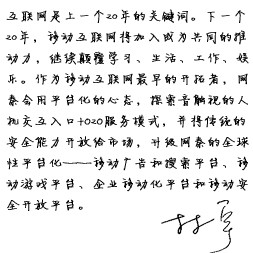 互联网是上一个20年的关键词。下一个
20年，移动互联网将加入成为共同的推
动力，继续颠覆学习、生活、工作、娱
乐。作为移动互联网最早的开拓者，网
秦会用平台化的心态，探索音触视的人
机交互入口+O2O服务模式，并将传统的
安全能力开放给市场，升级网秦的全球
性平台化——移动广告和搜索平台、移
动游戏平台、企业移动化平台和移动安
全开放平台。
林宇